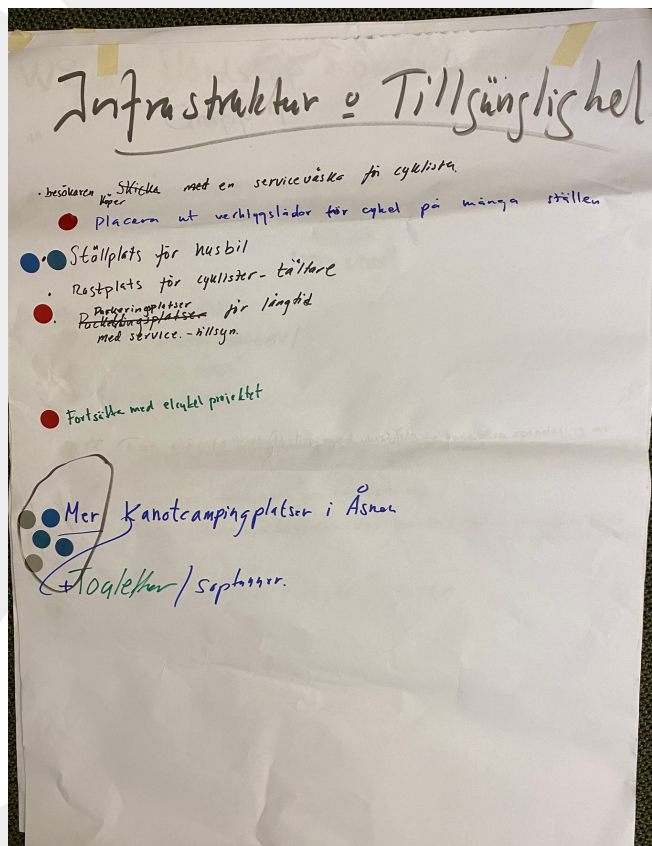 Infrastruktur o Tillgänglighet
· besökaren köper Skicka med en serviceväska för cyklister.
Placera ut verktygslådor för cykel på många ställen
· Ställplats för husbil
· Rastplats för cyklister - tältare
· Parkeringplatser för långtid
med service. - tillsyn.
Fortsätta med elcykel projektet
Mer Kanotcampingplatser i Åsnen
+ Toaletter / soptunnor.